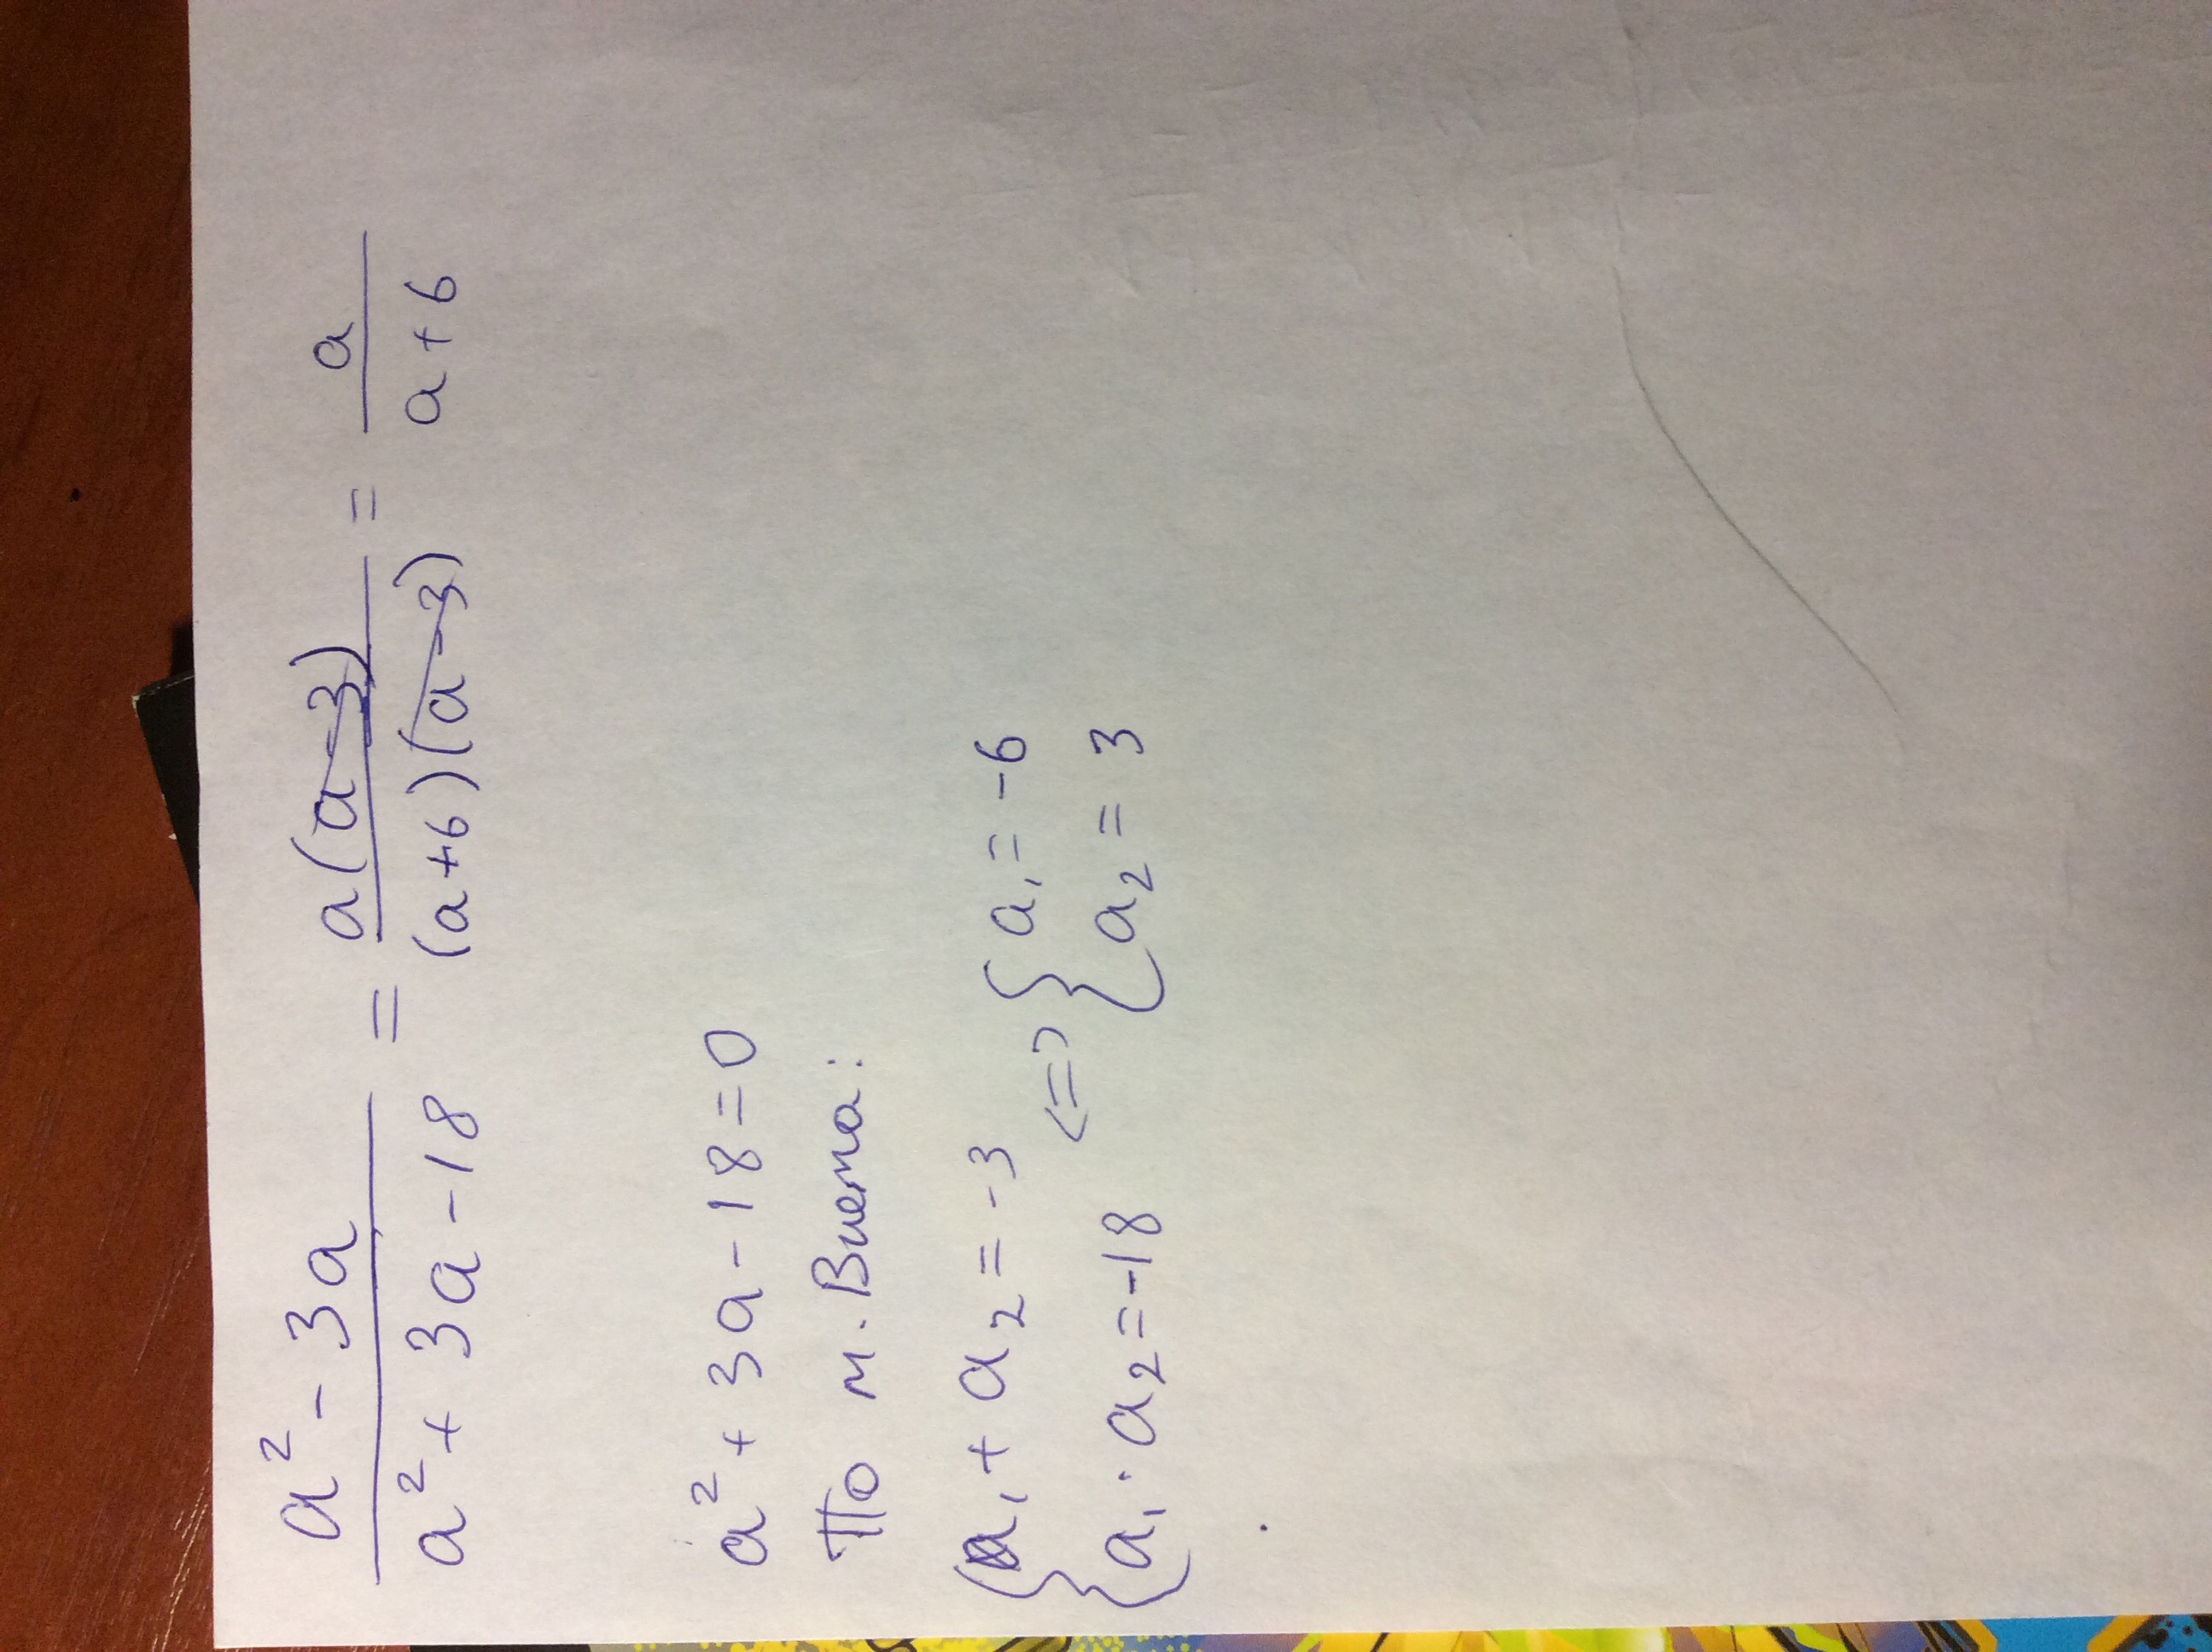 a² - 3a / a² + 3a - 18 = a(a-3) / (a+6)(a-3) = a / a+6
a² + 3a - 18 = 0
По т. Виета:
{ a₁ + a₂ = -3 <=> { a₁ = -6
{ a₁ · a₂ = -18 { a₂ = 3